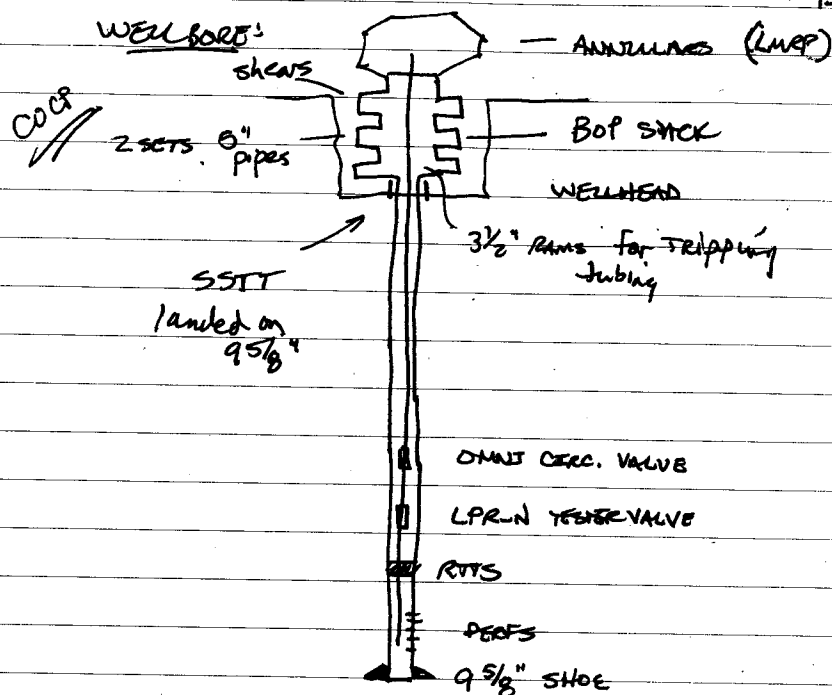 WELLBORE:
ANNULARS (LMRP)
shears
COCP
2 SETS. 5" pipes
BOP STACK
WELLHEAD
3½" RAMS for TRIPPING
tubing
SSTT
landed on
9 5/8"
OMNI CIRC. VALVE
LPR-N TESTER VALVE
RTTS
PERFS
9 5/8" SHOE